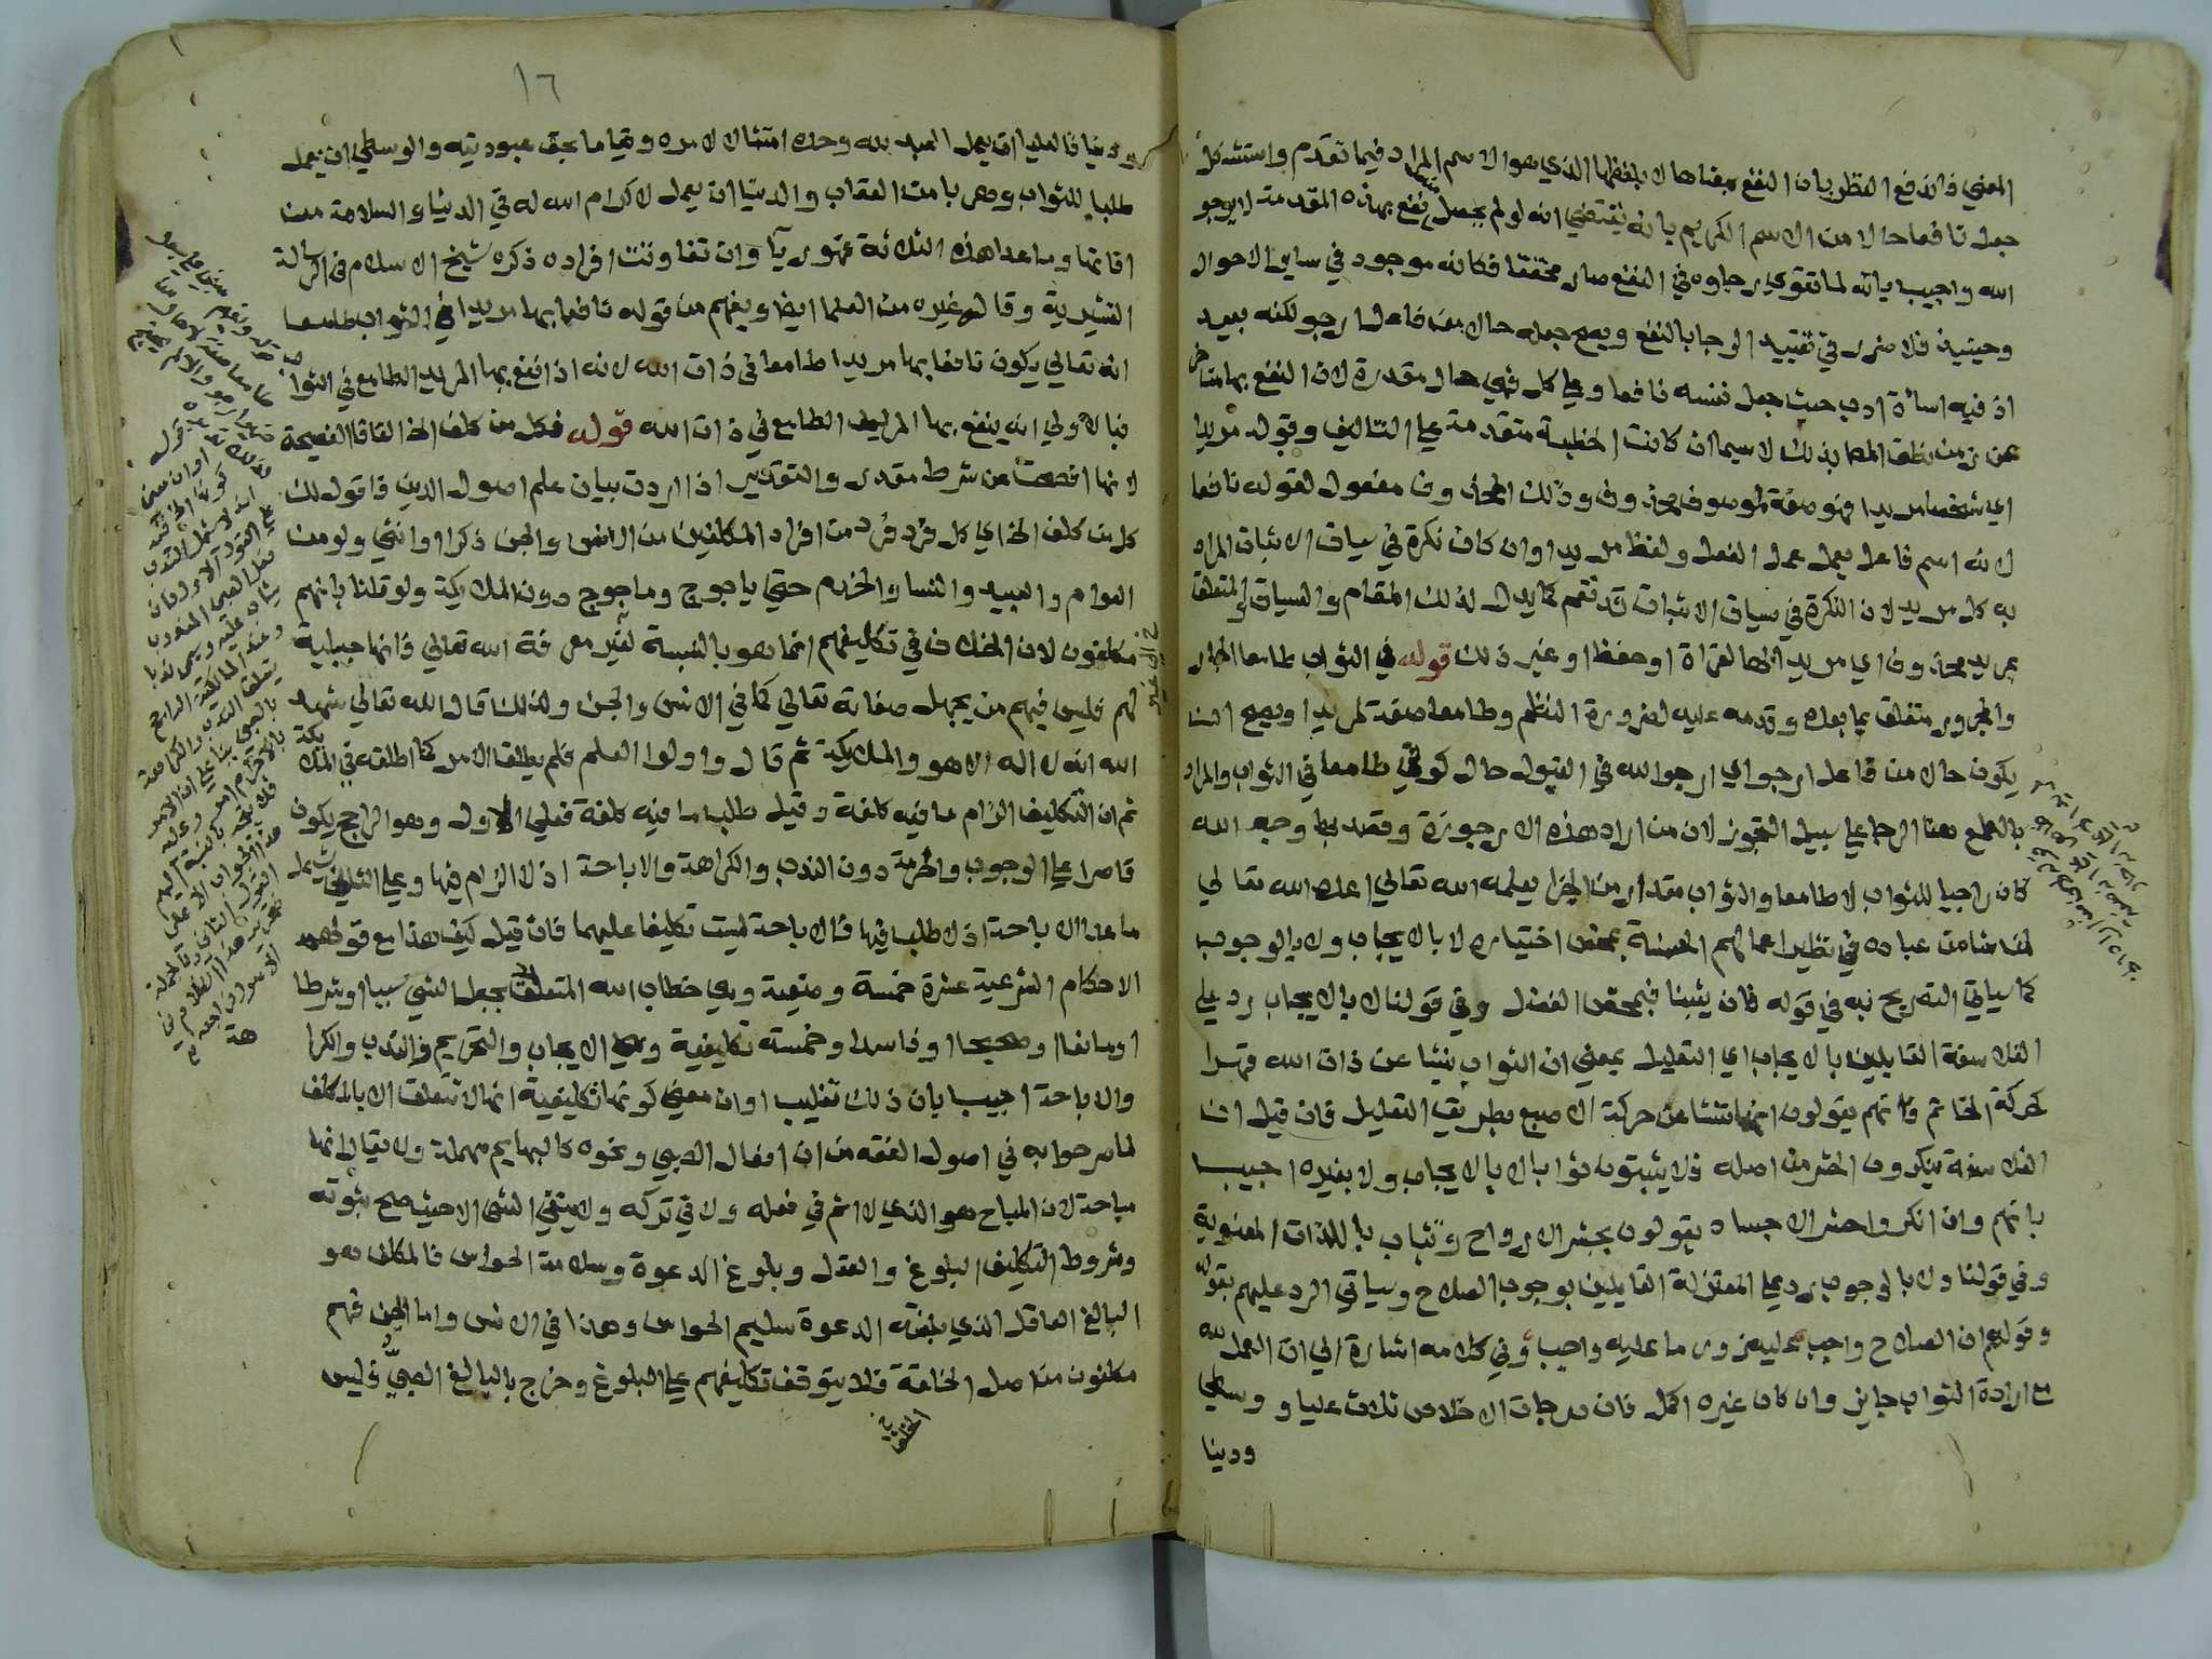 المعني فاندفع التنظير بان النفع بمعناها لا بلفظها الذي هو الاسم المراد فيما تقدم واستشكل
جعل نافعا حالا من الاسم الكريم بانه يقتضي انه لو لم يحصل نفع بهذه المقدمة لا يرجو
الله واجيب بانه لما تقوي رجاوه في النفع صار محققا فكانه موجود في ساير الاحوال
وحينيذ فلا ضرر في تقييد الرجا بالنفع ويصح جعله حال من فاعل ارجو لكنه بعيد
اذ فيه اسأة ادب حيث جعل نفسه نافعا وعلي كل فهي حال مقدرة لان النفع بها متاخر
عن زمن نطق المص بذلك لاسيما ان كانت الخطبة متقدمة علي التاليف وقوله مريدا
اي شخصا مريدا فهو صفة لموصوف محذوف وذلك المحذوف مفعول لقوله نافعا
لانه اسم فاعل يعمل عمل الفعل ولفظ مريدا وان كان نكرة في سياق الاثبات المراد
به كل مريد لان النكرة في سياق الاثبات قد تعم كما يدل لذلك المقام والسياق والمتعلق
بمريد محذوف اي مريد الها لقراة او حفظ او غير ذلك قوله في الثواب طامعا الجار
والمجرور متعلق بما بعده وقدمه عليه لضرورة النظم وطامعا صفة لمريدا ويصح ان
يكون حالا من فاعل ارجو اي ارجو الله في القبول حال كوني طامعا في الثواب والمراد
بالطمع هنا الرجا علي سبيل التجوز لان من اراد هذه الارجوزة وقصد بها وجه الله
كان راجيا للثواب لا طامعا والثواب مقدار من الجزا يعلمه الله تعالي اعده الله تعالي
لمن شا من عباده في نظير اعمالهم الحسنة بمحض اختياره لا بالايجاب ولا بالوجوب
كما سياتي التصريح به في قوله فان يثبنا فبمحض الفضل وفي قولنا لا بالايجاب رد علي
الفلاسفة القايلين بالايجاب اي التعليل بمعني ان الثواب ينشا عن ذات الله قهرا
كحركة الخاتم فانهم يقولون انها تنشا عن حركة الاصبع بطريق التعليل فان قيل ان
الفلاسفة ينكرون الحشر من اصله فلا يثبتون ثوابا لا بالايجاب ولا بغيره اجيب
بانهم وان انكروا حشر الاجساد يقولون بحشر الارواح وتثاب باللذات المعنوية
وفي قولنا ولا بالوجوب رد علي المعتزلة القايلين بوجوب الصلاح وسياتي الرد عليهم بقوله
وقولهم ان الصلاح واجب عليه زور ما عليه واجب وفي كلامه اشارة الي ان العمل لله
مع ارادة الثواب جايز وان كان غيره اكمل فان درجات الاخلاص ثلاث عليا و وسطي
ودنيا
١٦
ودنيا فالعليا ان يعمل العبد لله وحده امتثالا لامره وقياما بحق عبوديته والوسطي ان يعمل
طلبا للثواب وهربا من العقاب والدنيا ان يعمل لاكرام الله له في الدنيا والسلامة من
افاتها وما عدا هذه الثلاثة فهو ريآ وان تفاوتت افراده ذكره شيخ الاسلام في الرسالة
القشيرية وقاله غيره من العلما ايضا ويفهم من قوله نافعا بها مريدا في الثواب طامعا
انه تعالي يكون نافعا بها مريدا طامعا في ذات الله لانه اذا نفع بها المريد الطامع في الثوا
فبالاولي انه ينفع بها المريد الطامع في ذات الله قوله فكل من كلف الخ الفا فا الفصيحة
لانها افصحت عن شرط مقدر والتقدير اذا اردت بيان علم اصول الدين فاقول لك
كل من كلف الخ اي كل فرد فرد من افراد المكلفين من الانس والجن ذكرا او انثي ولو من
العوام والعبيد والنسا والخدم حتي ياجوج وماجوج دون الملايكة ولو قلنا بانهم
مكلفون لان الخلاف في تكليفهم انما هو بالنسبة لغير معرفة الله تعالي فانها جبلية
لهم فليس فيهم من يجهل صفاته تعالي كما في الانس والجن ولذلك قال الله تعالي شهد
الله انه لا اله الا هو والملايكة ثم قال واولوا العلم فلم يطلق الامر كما اطلقه في الملايكة
ثم ان التكليف الزام ما فيه كلفة وقيل طلب ما فيه كلفة فعلي الاول وهو الراجح يكون
قاصرا علي الوجوب والحرمة دون الندب والكراهة والاباحة اذ لا الزام فيها وعلي الثاني يشمل
ما عدا الاباحة اذ لا طلب فيها فالاباحة ليست تكليفا عليهما فان قيل كيف هذا مع قولهم
الاحكام الشرعية عشرة خمسة وضعية وهي خطاب الله المتعلق بجعل الشي سببا او شرطا
او مانعا او صحيحا او فاسدا وخمسة تكليفية وهي الايجاب والتحريم والندب والكرا
والاباحة اجيب بان ذلك تغليب او ان معني كونها تكليفية انها لا تتعلق الا بالمكلف
لما صرحوا به في اصول الفقه من ان افعال الصبي ونحوه كالبهايم مهملة ولا يقال انها
مباحة لان المباح هو الذي لا اثم في فعله ولا في تركه ولا ينتفي الشي الا حيث صح ثبوته
وشروط التكليف البلوغ والعقل وبلوغ الدعوة وسلامة الحواس فالمكلف هو
البالغ العاقل الذي بلغته الدعوة سليم الحواس وهذا في الانس واما الجن فهم
مكلفون من اصل الخلقة فلا يتوقف تكليفهم علي البلوغ وخرج بالبالغ الصبي فليس